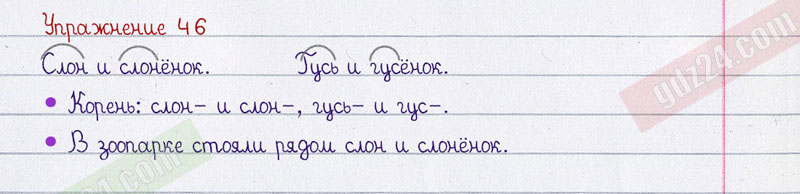 Упражнение 46
Слон и слонёнок. Гусь и гусёнок.
• Корень: слон- и слон-, гусь- и гус-.
• В зоопарке стояли рядом слон и слонёнок.
gdz24.com